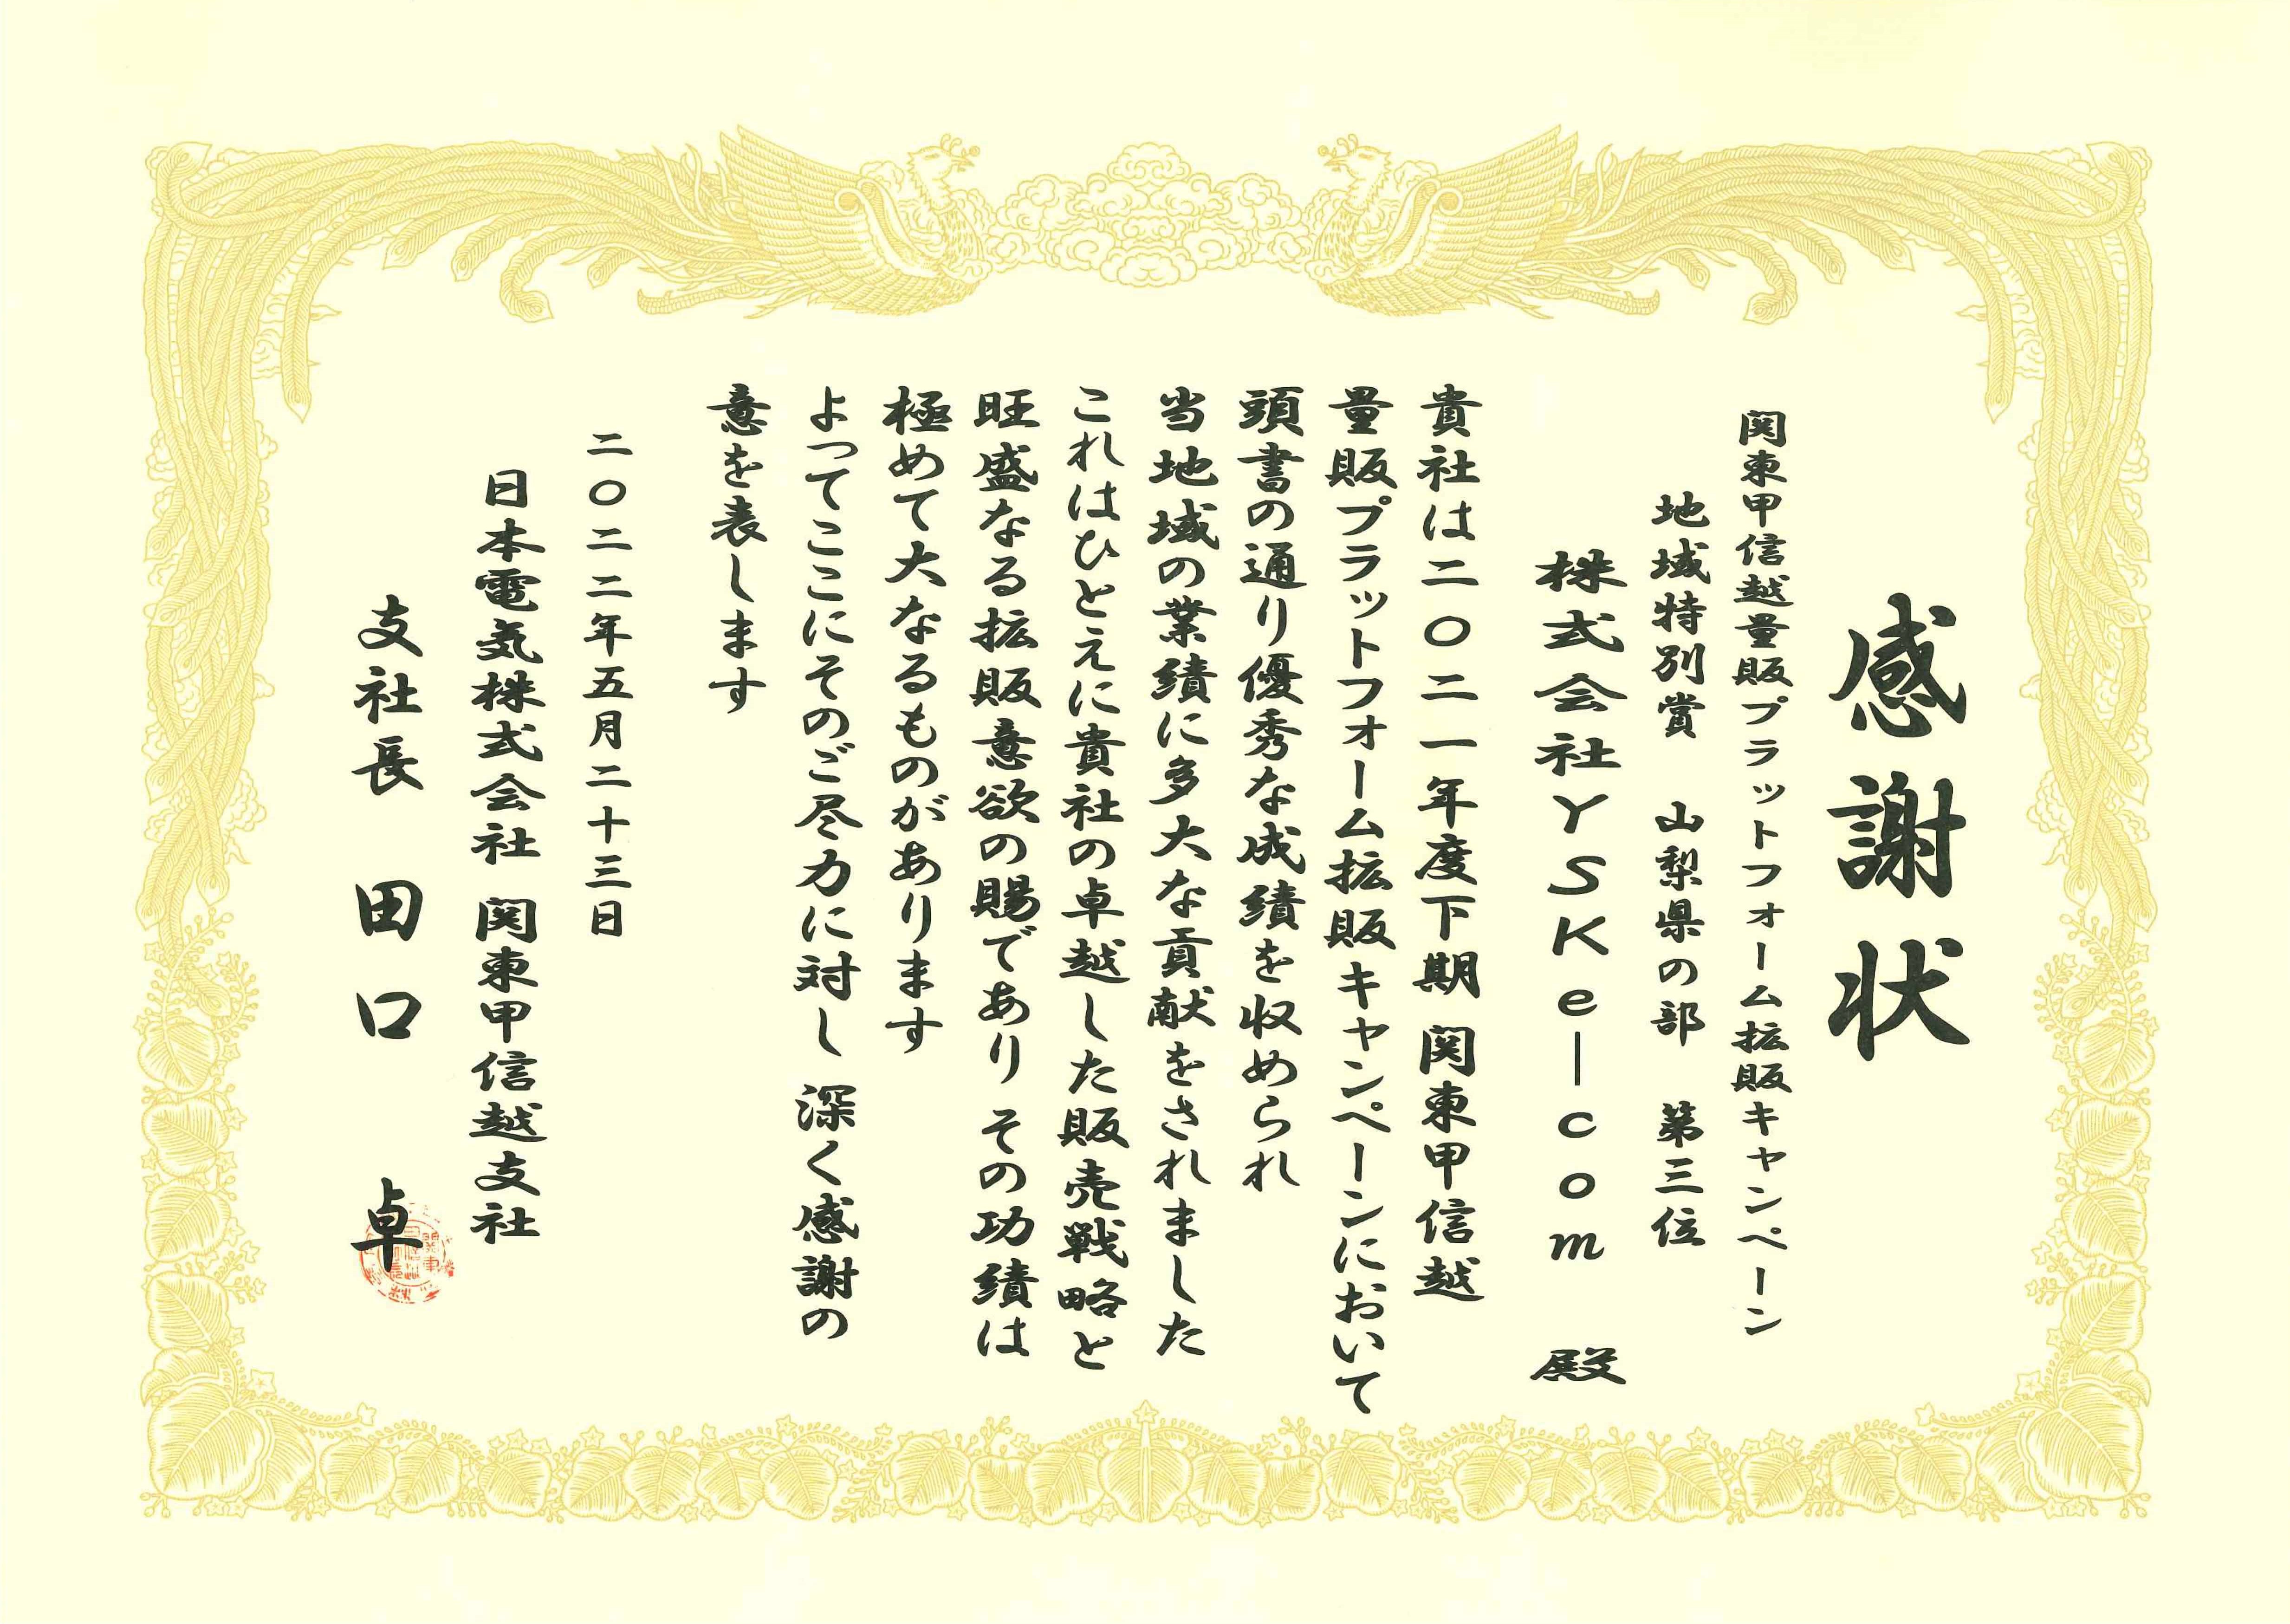 感謝状
関東甲信越量販プラットフォーム拡販キャンペーン
地域特別賞 山梨県の部 第三位
株式会社YSKe-com 殿
貴社は二〇二一年度下期 関東甲信越
量販プラットフォーム拡販キャンペーンにおいて
頭書の通り優秀な成績を収められ
当地域の業績に多大な貢献をされました
これはひとえに貴社の卓越した販売戦略と
旺盛なる拡販意欲の賜であり その功績は
極めて大なるものがあります
よってここにそのご尽力に対し 深く感謝の
意を表します
二〇二二年五月二十三日
日本電気株式会社 関東甲信越支社
支社長 田口 卓